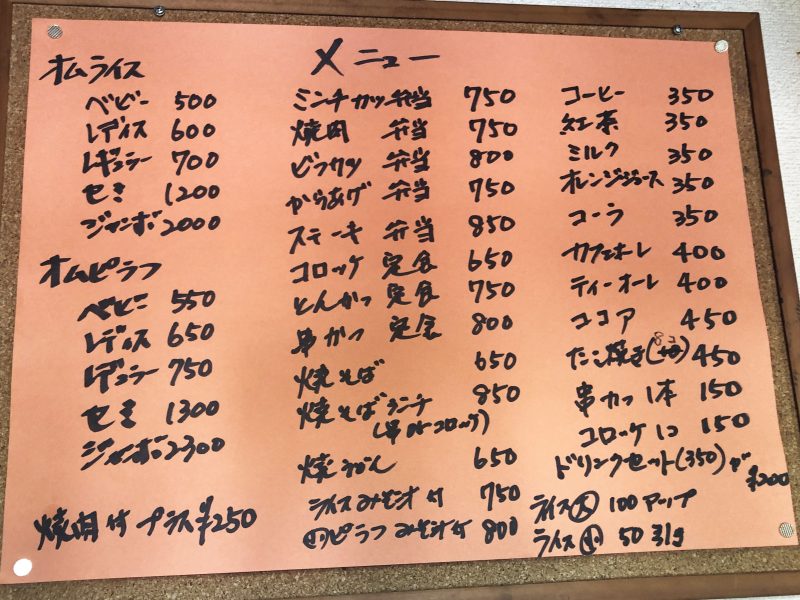 メニュー
オムライス
ベビー 500
レディス 600
レギュラー 700
セミ 1200
ジャンボ 2000
オムピラフ
ベビー 550
レディス 650
レギュラー 750
セミ 1300
ジャンボ 2300
焼肉付 プラス¥250
ミンチカツ 弁当 750
焼肉 弁当 750
ビフカツ 弁当 800
からあげ 弁当 750
ステーキ 弁当 850
コロッケ 定食 650
とんかつ 定食 750
串かつ 定食 800
焼そば 650
焼そばランチ 850
(串orコロッケ)
焼うどん 650
ライスみそ汁付 750
ピラフみそ汁付 800
コーヒー 350
紅茶 350
ミルク 350
オレンジジュース 350
コーラ 350
カフェオーレ 400
ティーオーレ 400
ココア 450
たこ焼き(8コ) 450
串カツ 1本 150
コロッケ 1コ 150
ドリンクセット(350)が
¥200
ライス大 100アップ
ライス小 50引き